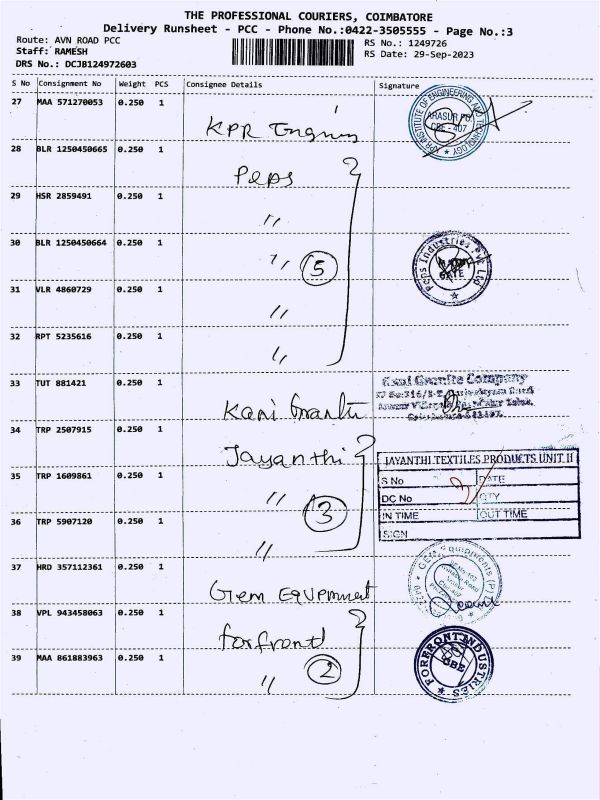 THE PROFESSIONAL COURIERS, COIMBATORE
Delivery Runsheet - PCC - Phone No.:0422-3505555 - Page No.:3
Route: AVN ROAD PCC
RS No.: 1249726
Staff: RAMESH
RS Date: 29-Sep-2023
DRS No.: DCJB124972603
S No Consignment No Weight PCS Consignee Details Signature
27 MAA 571270053 0.250 1
KPR Engines
KPR INSTITUTE OF ENGINEERING AND TECHNOLOGY
ARASUR PO
CBE - 407
28 BLR 1250450665 0.250 1
Peps
29 HSR 2859491 0.250 1
"
30 BLR 1250450664 0.250 1
" 5
Peps Industries Pvt Ltd
GATE
31 VLR 4860729 0.250 1
"
32 RPT 5235616 0.250 1
"
33 TUT 881421 0.250 1
Kani Granite Company
Kani
34 TRP 2507915 0.250 1
Jayanthi
JAYANTHI TEXTILES PRODUCTS UNIT II
35 TRP 1609861 0.250 1
" 3
S No DATE
DC No QTY
IN TIME OUT TIME
SIGN
36 TRP 5907120 0.250 1
"
37 HRD 357112361 0.250 1
Gem Equpment
38 VPL 943458063 0.250 1
forfront
39 MAA 861883963 0.250 1
" 2
FOREFRONT INDUSTRIES
CBE